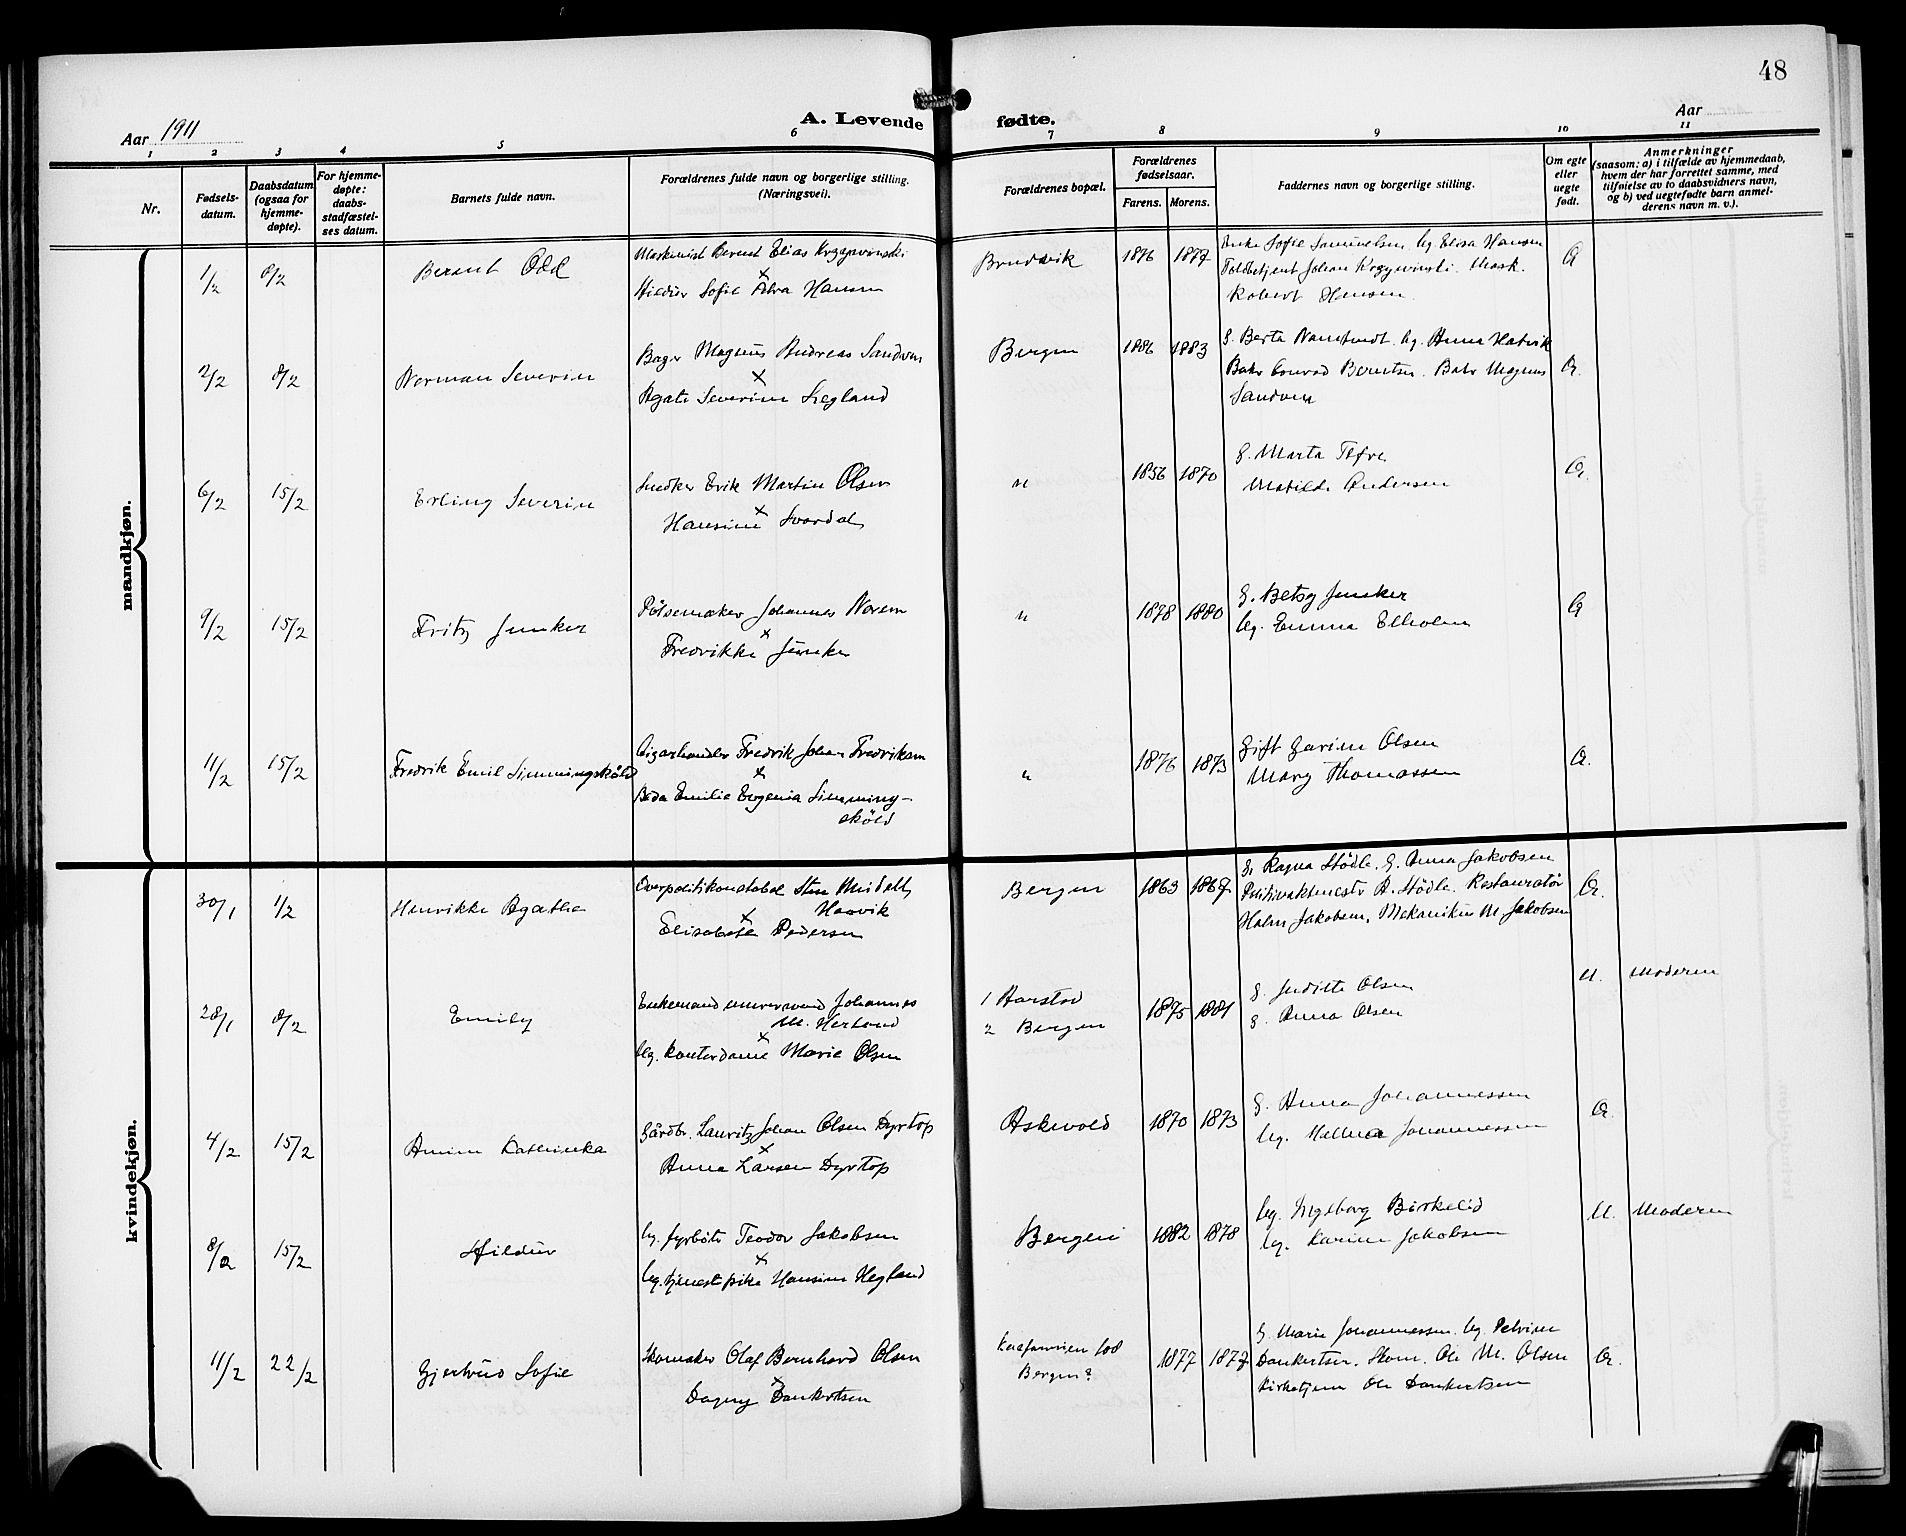 48
Aar 1911
A. Levende fødte.
Aar
1 2 3 4 5 6 7 8 9 10 11
Nr.
Fødsels-
datum.
Daabsdatum
(ogsaa for
hjemme-
døpte).
For hjemme-
døpte:
daabs-
stadfæstel-
ses datum.
Barnets fulde navn.
Forældrenes fulde navn og borgerlige stilling.
(Næringsvei).
Forældrenes bopæl.
Forældrenes
fødselsaar.
Farens. Morens.
Faddernes navn og borgerlige stilling.
Om egte
eller
uegte
født.
Anmerkninger
(saasom: a) i tilfælde av hjemmedaab,
hvem der har forrettet samme, med
tilføielse av to daabsvidners navn,
og b) ved uegtefødte barn anmel-
derens navn m. v.).
mandkjøn.
1/2 8/2 Berent Odd
Maskinist Berent Elias
x
Hildur Sofie Hansen
Bruduik 1876 1877
Enke Sofie Samuelsen. Ug. Elisa Hansen
Toldbetjent Johan Mask.
Robert Hansen.
2/2 8/2 Norman Severin
Bager Magnus Andreas Sandven
x
Agate Severine Legland
Bergen 1886 1883
G. Berta Ug. Anna Hatvik
Bakr Conrad Berntsen. Bakr Magnus
Sandven
6/2 15/2 Erling Severin
Snedker Erik Martin Olsen
x
Hansine Svardal
" 1856 1870
G. Marta Tefre
Matilde Andersen
9/2 15/2 Fritz Junker
Pølsemaker Johannes Norem
x
Fredrikke Junker
" 1878 1880
G. Betsy Junker
Ug. Emma Elholm
11/2 15/2 Fredrik Emil Simmingskøld
Cigarhandler Fredrik Johan Fredriksen
x
Beda Emilie Eugenia Simming-
skøld
" 1876 1873
Gift Garine Olsen
Mary Thomassen
kvindekjøn.
30/1 1/2 Henrikke Agathe
Overpolitikonstabel Sten Misdell
Haavik
x
Elisabeth Pedersen
Bergen 1863 1867
G. Ragna Stødle. G. Anna Jakobsen
A. Stødle. Restauratør
Holm Jakobsen, Mekanikus M. Jakobsen
28/1 8/2 Emily
Enkemand murersvend Johannes
M. Herland
x
Ug. kontordame Marie Olsen
1 Aarstad
2 Bergen
1875 1881
G. Juditte Olsen
G. Anna Olsen
U. Moderen
4/2 15/2 Amine Kathinka
Gårdbr. Lauritz Johan Olsen Dyrtop
x
Anna Larsen Dyrtop
Askevold 1870 1873
G. Anna Johannessen
Ug. Johannessen
8/2 15/2 Hildur
Ug. fyrbøter Teodor Jakobsen
x
Ug. tjenestpike Hansine Hegland
Bergen 1882 1878
Ug. Ingeborg Birkelid
Ug. Karine Jakobsen
U. Moderen
11/2 22/2 Gjertrud Sofie
Skomaker Olaf Bernhard Olsen
x
Dagny Dankertsen
Bergen?
1877 1877
G. Marie Johannessen. Ug. Pelvine
Dankertsen. Skom. Ole M. Olsen
Kirketjener Ole Dankertsen